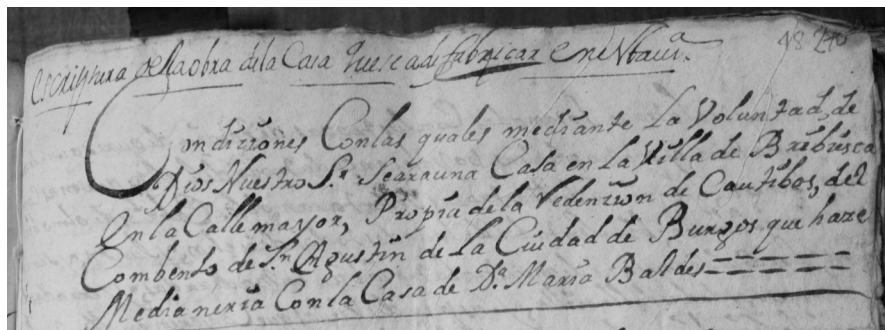 escriptura de la obra de la Casa que se a de fabricar en
Condiziones Con las quales mediante La Voluntad, de
Dios Nuestro S.r Se ara una Casa en La Villa de Bribiesca
En la Calle mayor, Propia de la Redenzion de Cautibos, del
Combento de S.n Agustin de La Ciudad de Burgos que haze
Medianeria Con la Casa de D.a Maria Baldes